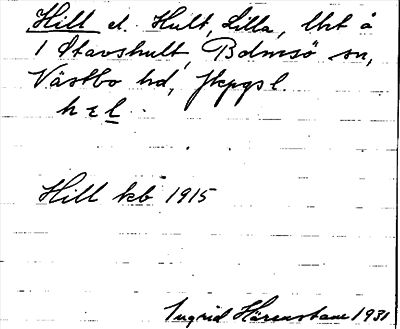 Hill el. Hult, Lilla, lht å
1 Stavshult, Bolmsö sn,
Västbo hd, Jkpgs l.
h ɛ l
Hill kb 1915
Ingrid 1931